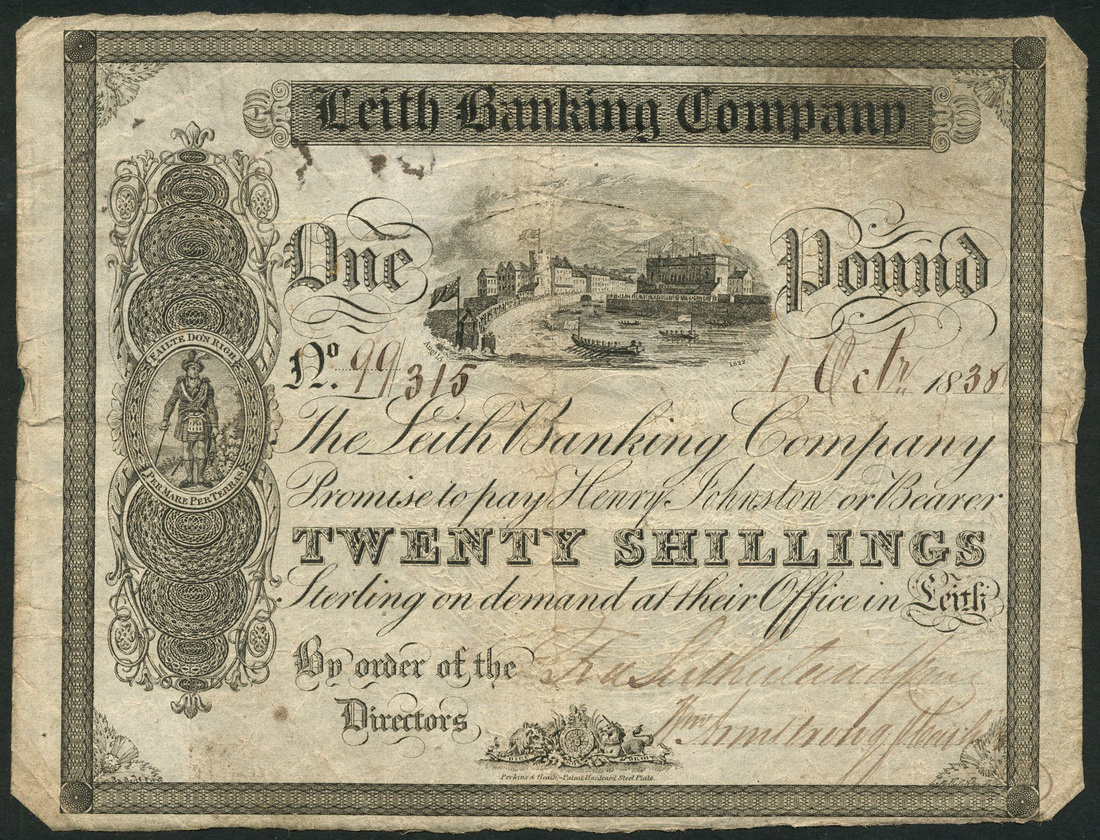 Leith Banking Company
One Pound
FAILTE DON RIGH
August 1822
No. 99/315 1 Octr. 1838
The Leith Banking Company
PER MARE PER TERRAS
Promise to pay Henry Johnston or Bearer
TWENTY SHILLINGS
Sterling on demand at their Office in Leith
By order of the
Directors
Wm Armstrong
Perkins & Heath - Patent Hardened Steel Plate.